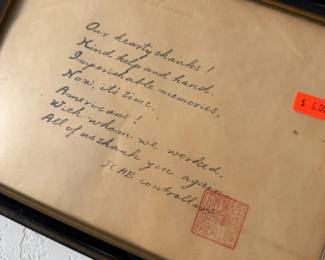 Our hearty thanks!
Kind help and hand,
Imperishable memories,
Now, it's time.
Americans!
With whom we worked,
All of us thank you again
JCAB controllers
$ 6.00